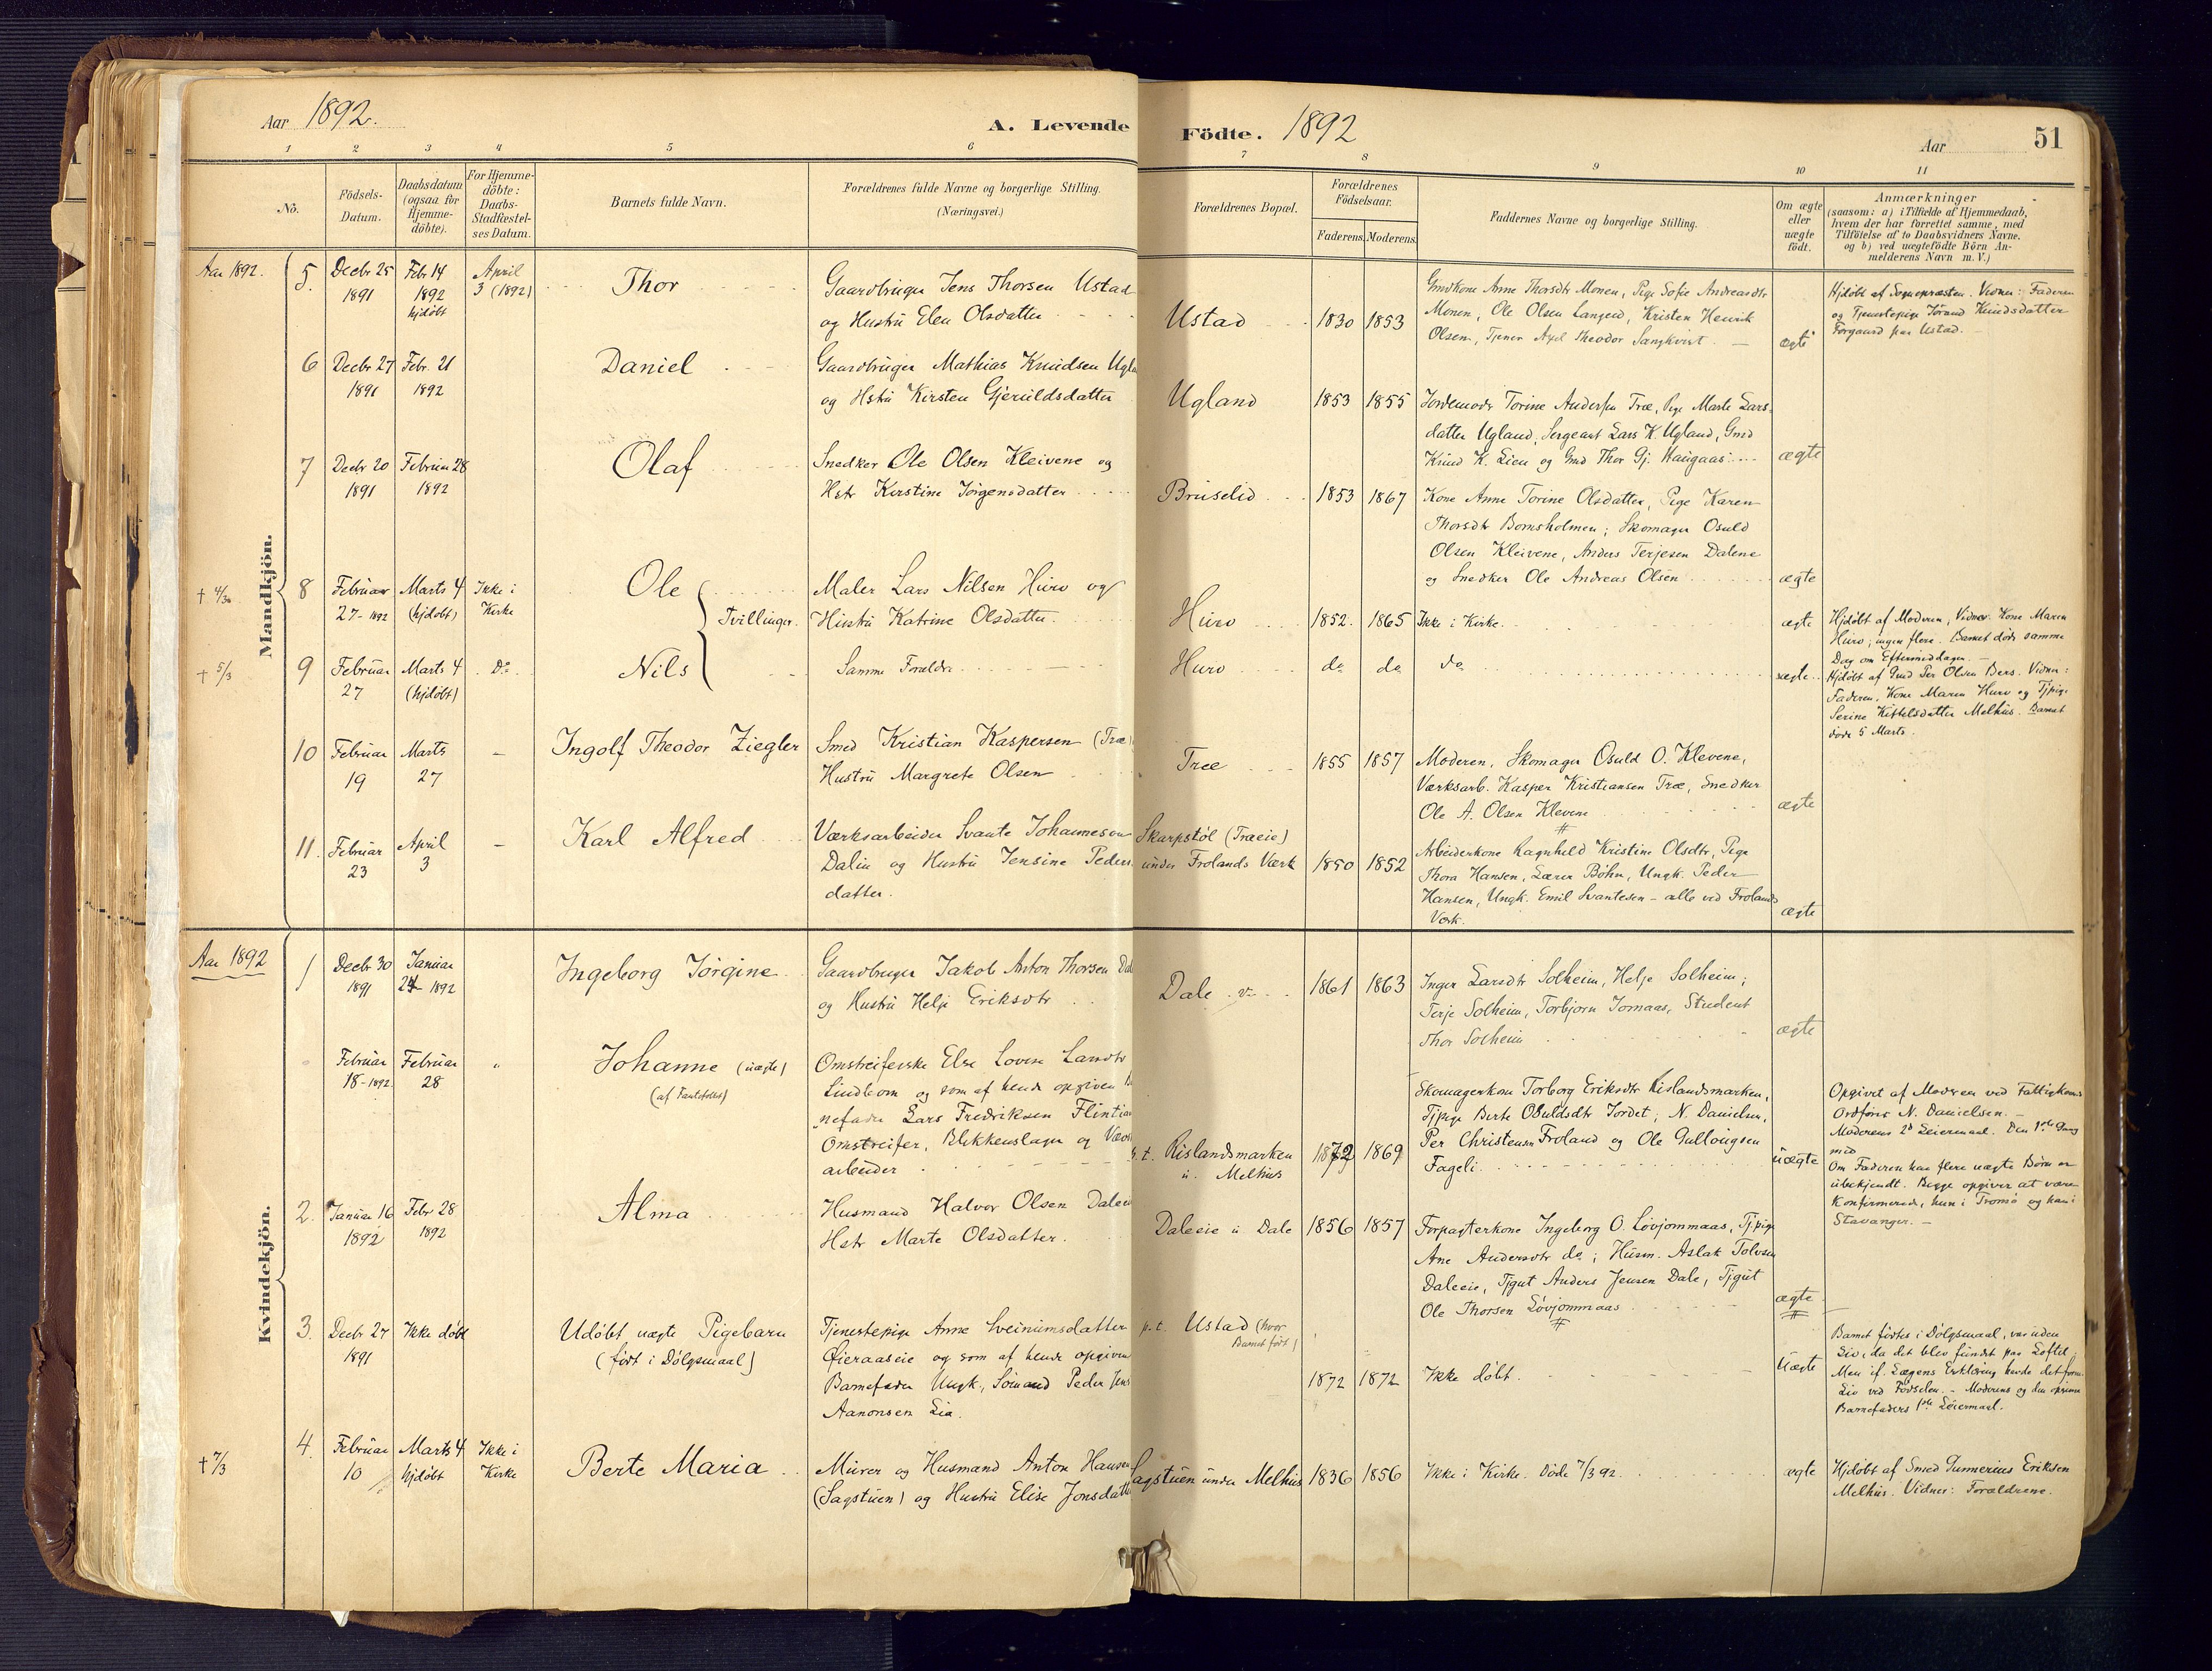 Aar 1892.
A. Levende
Födte. 1892
Aar
51
1 2 3 4 5 6 7 8 9 10 11
No.
Födsels-
Datum.
Daabsdatum
(ogsaa for
Hjemme-
döbte).
For Hjemme-
döbte:
Daabs-
Stadfæstel-
ses Datum.
Barnets fulde Navn.
Forældrenes fulde Navne og borgerlige Stilling.
(Næringsvei.)
Forældrenes Bopæl.
Forældrenes
Födselsaar.
Faderens. Moderens.
Faddernes Navne og borgerlige Stilling.
Om ægte
eller
uægte
födt.
Anmærkninger
(saasom: a) i Tilfælde af Hjemmedaab,
hvem der har forrettet samme, med
Tilföielse af to Daabsvidners Navne.
og b) ved uægtefödte Börn An-
melderens Navn m. V.)
Mandkjön.
Aar 1892.
5.
Decbr 25
1891
Febr 14
1892
hjdøbt
April
3 (1892)
Thor
Gaardbruger Jens Thorsen Ustad
og Hustru Elen Olsdatter
Ustad
1830 1853
Gmdkone Anne Thorsdtr Monen, Pige Sofie Andreasdtr
Monen, Ole Olsen Langerd, Kristen Henrik
Olsen, Tjener Axel Theodor Sangkvist.
ægte
Hjdøbt af Sognepræsten. Vidner: Faderen
og Tjenestepige Jorand Knudsdatter
Torgaard paa Ustad.
6
Decbr 27
1891
Febr. 21
1892
Daniel
Gaardbruger Mathias Knudsen Ugla
og Hstru Kirsten Gjeruldsdatter
Ugland
1853 1855
Jordemodr Torine Andersen Træ, Pige Marte Lars-
datter Ugland, Sergeant Lars K. Ugland, Gmd
Knud K. Lien og Gmd Thor Gj. Haugaas
ægte
7
Decbr 20
1891
Februar 28
1892
Olaf
Snedker Ole Olsen Kleivene og
Hstr Kirstine Jørgensdatter
Bruselid
1853 1867
Kone Anne Torine Olsdatter, Pige Karen
Thorsdtr Bomsholmen; Skomager Osuld
Olsen Kleivene, Anders Terjesen Dalene
og Snedker Ole Andreas Olsen
ægte
8
Februar
27-1892
Marts 4
(hjdøbt)
Ikke i
Kirke
Ole
Tvillinger.
Maler Lars Nilsen Hurv og
Hustru Katrine Olsdatter.
Hurv
1852. 1865
Ikke i Kirke.
ægte
Hjdøbt af Moderen, Vidner Kone Maren
Hurv; ingen flere. Barnet døde samme
Dag om Eftermiddagen.
† 5/3
9
Februar
27
Marts 4
(hjdøbt)
Do
Nils
Samme Forældre
Hurv
do do do
ægte
Hjdøbt af Gmd Per Olsen Bers. Vidner:
Faderen, Kone Maren Hurv og Tjpige
Serine Kittelsdatter Melhus. Barnet
døde 5 Marts.
10
Februar
19
Marts
27
Ingolf Theodor Ziegler
Smed Kristian Kaspersen (Træ)
Hustru Margrete Olsen
Træ
1855 1857
Moderen, Skomager Osuld O. Klevene,
Værksarb. Kasper Kristiansen Træ, Snedker
Ole A. Olsen Klevene
ægte
11.
Februar
23
April
3
Karl Alfred
Værksarbeider Svante Johanneson
Dalin og Hustru Jensine Peders
datter.
Skarpstøl (Træeie)
under Frolands Værk
1850 1852
Arbeiderkone Ragnhild Kristine Olsdtr, Pige
Thora Hansen, Lærer Bøhn, Ungk. Peder
Hansen, Ungk. Emil Svantesen - alle ved Frolands
Værk.
ægte
Kvindekjön.
Aar 1892
1
Decbr 30
1891
Januar
24 1892
Ingeborg Jørgine
Gaardbruger Jakob Anton Thorsen Dal
og Hustru Helje Eriksdtr
Dale
1861 1863
Inger Larsdtr Solheim, Helje Solheim;
Terje Solheim, Torbjørn Jomaas, Student
Thor Solheim
ægte
Februar
18-1892
Februar
28
Johanne (uægte)
Omstreiferske Else Lovise Larsdtr
Lindbom og som af hende opgiven
nefader Lars Fredriksen Flintian
Omstreifer, Blikkenslager og
arbeider
p. t. Rislandsmarken
u. Melhus
1872 1869
Skomagerkone Torborg Eriksdtr Rislandsmarken,
Tjpige Berte Osuldsdtr Jordet; N. Danielsen,
Per Christensen Froland og Ole Gullougsen
Fageli.
uægte
Opgivet af Moderen ved Fattigkomm
Ordfører N. Danielsen.
Moderens 2d Leiermaal. Den 1ste Gang
med
Om Faderen har flere uægte Børn er
ubekjendt. Begge opgiver at være
Konfirmerede, hun i Tromsø og han i
Stavanger.
2.
Januar 16
1892
Febr 28
1892
Alma
Husmand Halvor Olsen Daleeie
Hstr Marte Olsdatter.
Daleeie u Dale
1856 1857
Forpagterkone Ingeborg O. Løvjommaas, Tjpige
Ane Andersdtr do; Husm. Aslak Tolvsen
Daleeie, Tjgut Anders Jensen Dale, Tjgut
Ole Thorsen Løvjommaas
ægte
3.
Decbr 27
1891
Ikke døbt
Udøbt uægte Pigebarn
(født i Dølgsmaal)
Tjenestepige Anne Sveinumsdatter
Øieraaseie og som af hende opgiven
Barnefader Ungk., Sømand Peder Jens
Aanonsen Lia.
p. t. Ustad (hvor
Barnet født)
1872 1872
Ikke døbt.
Uægte
Barnet fødtes i Dølgsmaal, var uden
Liv, da det blev fundet paa Loftet.
Men if. Lægens Erklæring havde det
Liv ved Fødselen. - Moderens og den opgivne
Barnefaders 1ste Leiermaal.
† 7/3
4.
Februar
10
Marts 4
hjdøbt
Ikke i
Kirke
Berte Maria
Murer og Husmand Anton Hansen
(Sagstuen) og Hustru Elise Jonsdatt
Sagstuen under Melhus
1836 1856
Ikke i Kirke. Døde 7/3 92.
ægte
Hjdøbt af Smed Gunnerius Eriksen
Melhus. Vidner: Forældrene.